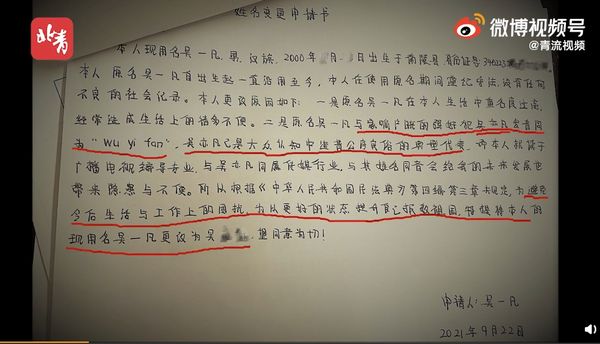 姓名变更申请书
北青
微博视频号
@青流视频
本人现用名吴一凡,男,汉族,2000年 月 日出生于南陵县,身份证号
本人原名吴一凡自出生起一直沿用至今,本人在使用原名期间遵纪守法,没有任何
不良的社会记录。本人更改原因如下:一是原名吴一凡在本人生活中重名度过高,
经常造成生活上的诸多不便。二是原名吴一凡与家喻户晓的强奸犯吴亦凡发音同
为“wu yi fan”,吴亦凡已是大众认知中违背公序良俗的典型代表,而本人就读于
广播电视编导专业,与吴亦凡同属传媒行业,与其姓名同音会给我的未来发展也
带来隐患与不便。所以根据《中华人民共和国民法典》第四编第三章规定,为避免
今后生活与工作上的困扰,为以更好的状态提升自己报效祖国,特将本人的
现用名吴一凡更改为吴 ,望同意为切!
申请人:吴一凡
2021年9月22日